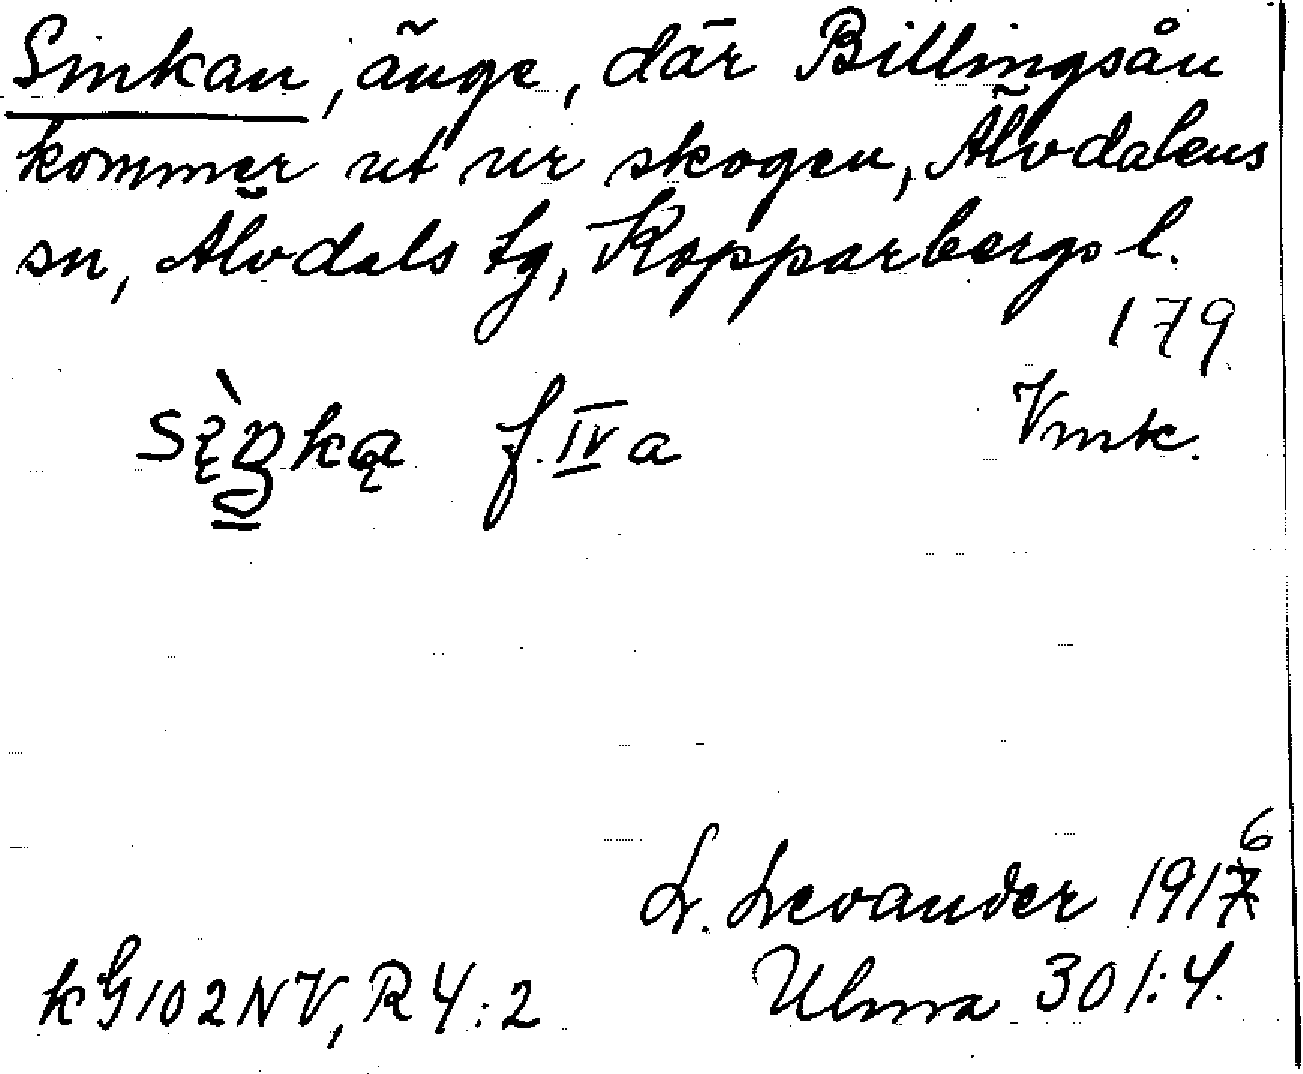 Sinkan, änge, där Billingsån
kommer ut ur skogen, Älvdalens
sn, Älvdals tg, Kopparbergs l.
179
f. IV a
Vmk.
L. Levander 1916
kG 102 NV, R 4:2
Ulma 301:4.